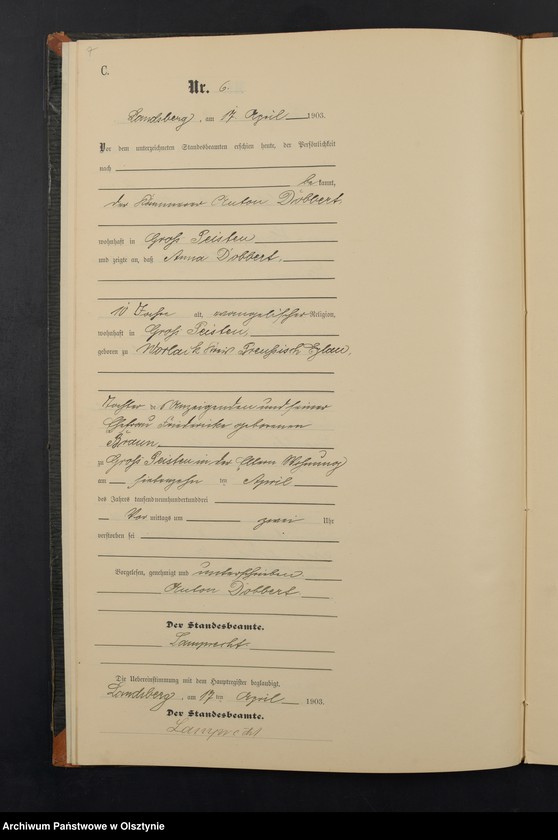 C.
Nr. 6.
Landsberg, am 17 April 1903.
Vor dem unterzeichneten Standesbeamten erschien heute, der Persönlichkeit
nach
be kannt,
der Anton Dobbert
wohnhaft in Groß Peisten
und zeigte an, daß Anna Dobbert,
10 Jahre alt, evangelischer Religion,
wohnhaft in Groß Peisten,
geboren zu Worlack Kreis Preußisch Eylau,
Tochter de Anzeigenden und seiner
Ehefrau Friederike geborenen
Braun
zu Groß Peisten in der Wohnung
am siebzehn ten April
des Jahres tausendneunhundertunddrei
Vor mittags um zwei Uhr
verstorben sei
Vorgelesen, genehmigt und unterschrieben
Anton Dobbert
Der Standesbeamte.
Lamprecht
Die Uebereinstimmung mit dem Hauptregister beglaubigt.
Landsberg, am 17 ten April 1903.
Der Standesbeamte.
Lamprecht
Archiwum Państwowe w Olsztynie